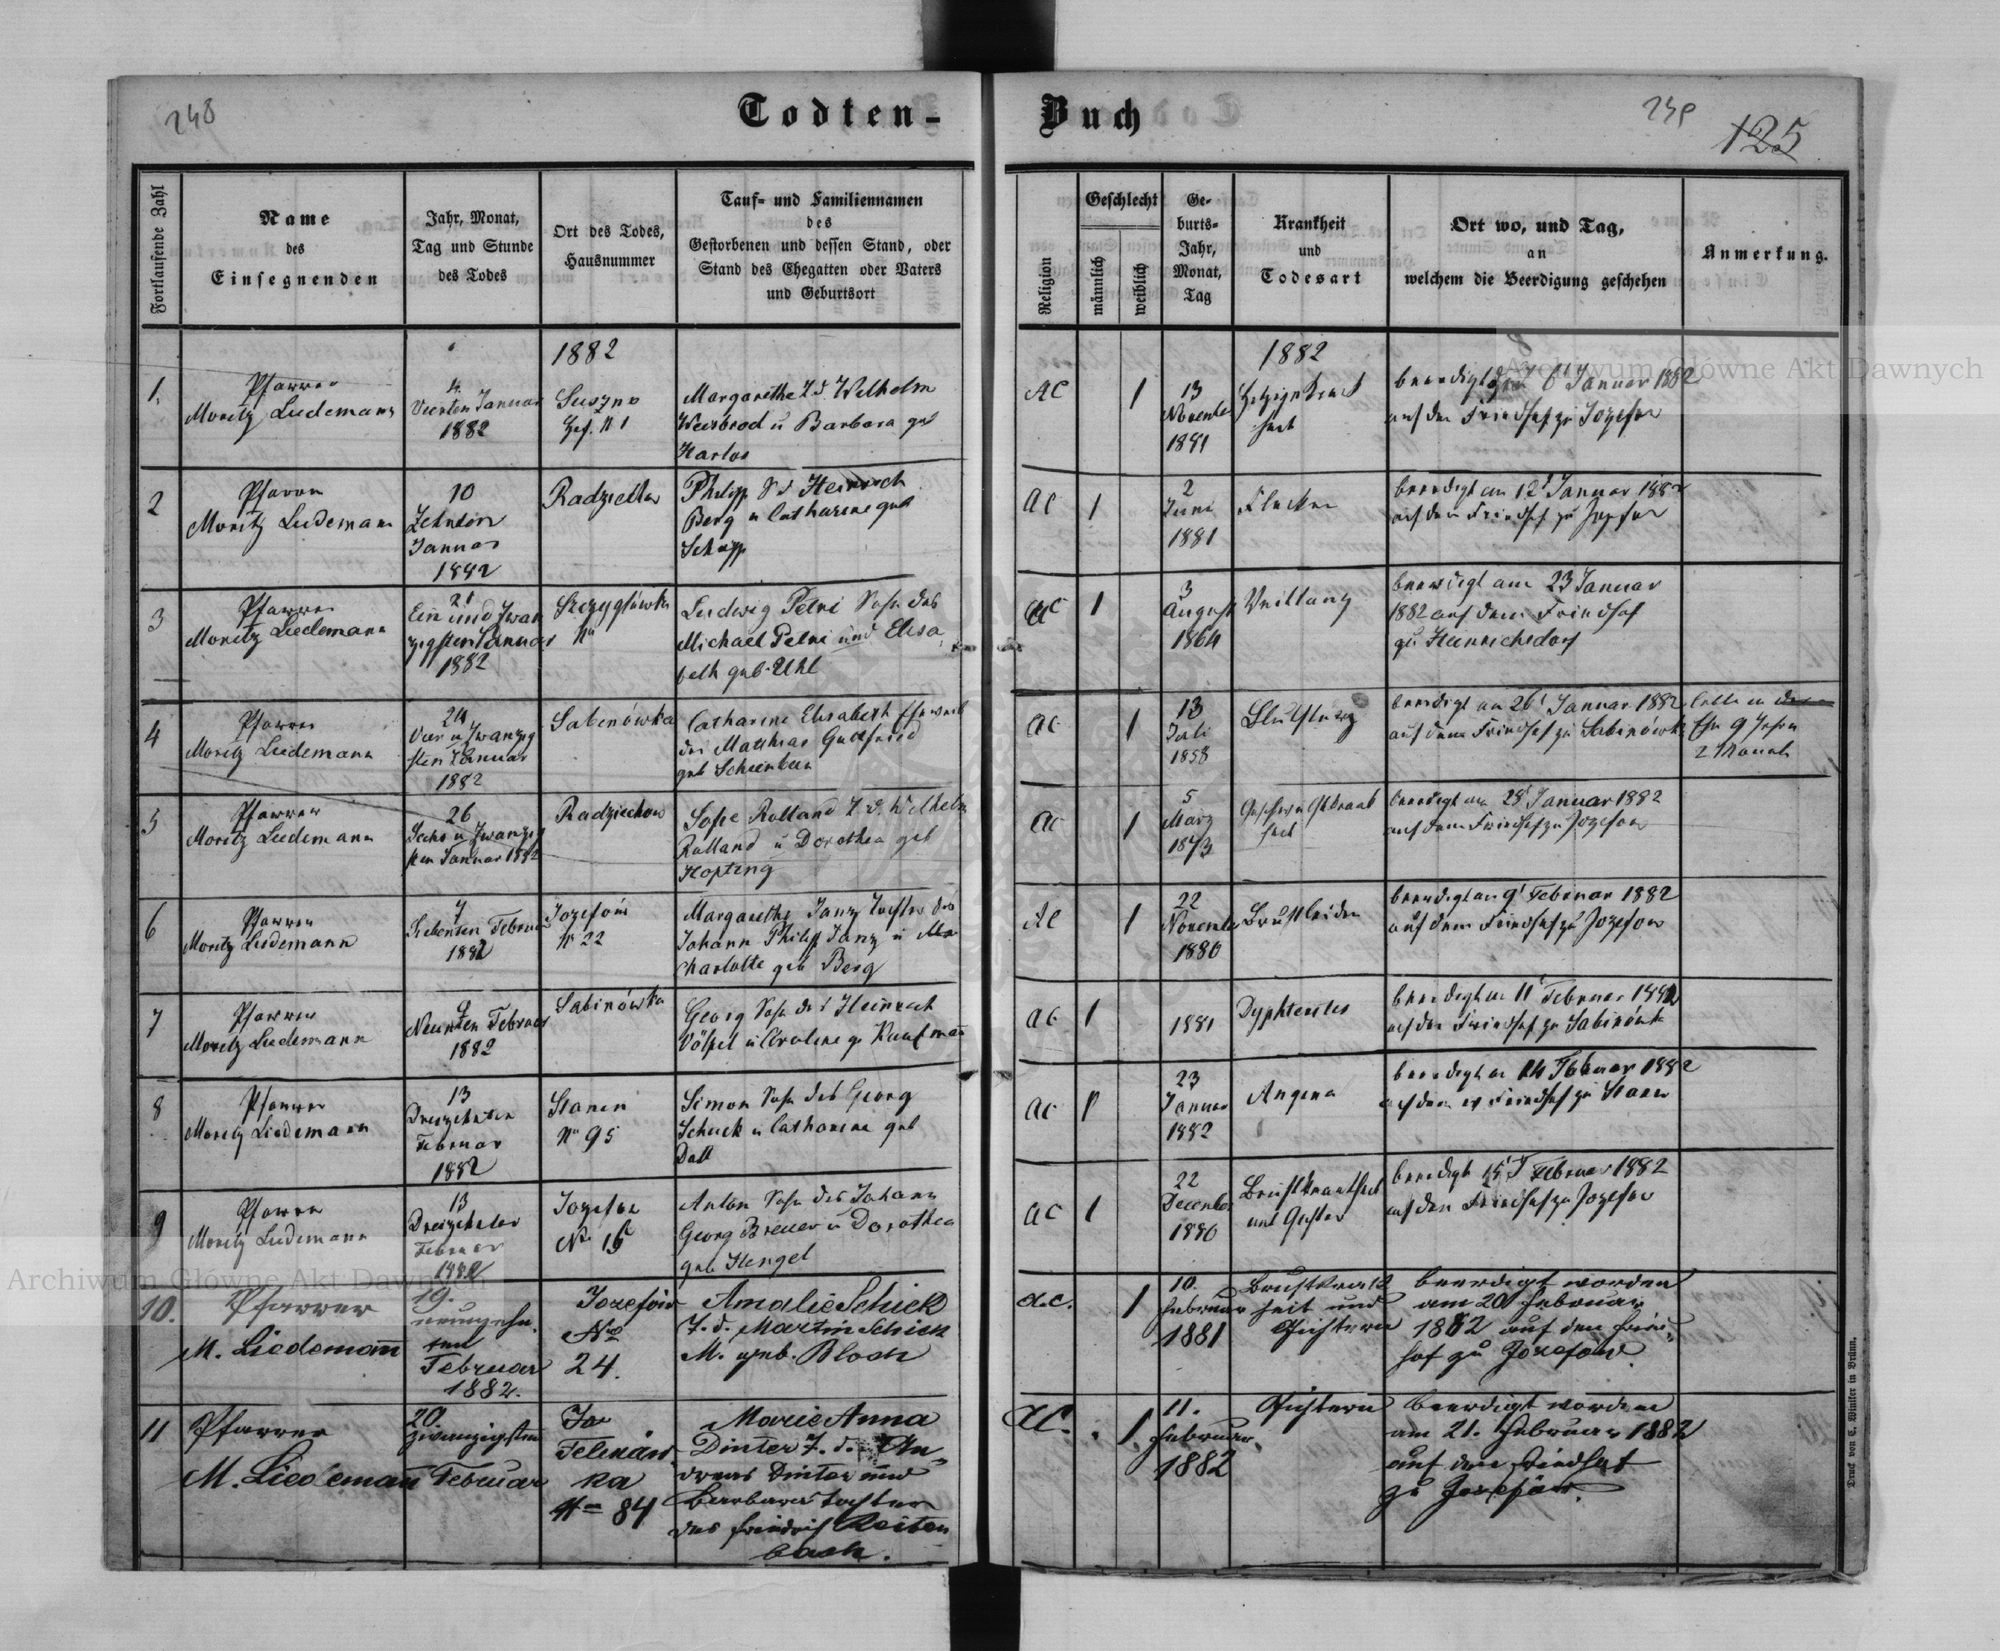 248
Todten-
Buch
239
125
Fortlaufende Zahl
Name
des
Einsegnenden
Jahr, Monat,
Tag und Stunde
des Todes
Ort des Todes,
Hausnummer
Tauf- und Familiennamen
des
Gestorbenen und dessen Stand, oder
Stand des Ehegatten oder Vaters
und Geburtsort
Religion
Geschlecht
männlich
weiblich
Ge-
burts-
Jahr,
Monat,
Tag
Krankheit
und
Todesart
Ort wo, und Tag,
an
welchem die Beerdigung geschehen
Anmerkung.
1882
1882
1.
Pfarrer
Moritz Liedemann
4.
Vierten Januar
1882
Suszno
N 1
Margarethe T. d. Wilhelm
Weisbrod u Barbara geb
Karlos
AC
1
13
November
1881
beerdigt 6t Januar 1882
auf den Friedhof zu Jozefow
2
Pfarrer
Moritz Liedemann
10
Zehnten
Januar
1882
Radziechow
Philipp S d Heinrich
Berg u Catharine geb
Schapp
AC
1
2
Juni
1881
Flecken
beerdigt am 12t Januar 1882
auf dem Friedhof zu Jozefow
3
Pfarrer
Moritz Liedemann
21
Ein und Zwan
zigsten Januar
1882
Szczygłówka
Nº
Ludwig Petri Sohn des
Michael Petri und Elisa
beth geb. Uhl
AC
1
3
August
1864
beerdigt am 23 Januar
1882 auf dem Friedhof
zu Heinrichsdorf
4
Pfarrer
Moritz Liedemann
24
Vier u Zwanzig
sten Januar
1882
Sabinówka
Catharine Elisabeth Eheweib
des Matthias Gottfried
geb
AC
1
13
Juli
1858
Blutsturz
beerdigt am 26t Januar 1882
auf dem Friedhof zu Sabinówka
lebte in der
Ehe 9 Jahre
2 Monate
5
Pfarrer
Moritz Liedemann
26
Sechs u Zwanzig
sten Januar 1882
Radziechow
Sofie Rolland T. d. Wilhelm
Rolland u Dorothea geb
Hopfing
AC
1
5
März
1873
beerdigt am 28t Januar 1882
auf dem Friedhof zu Jozefow
6
Pfarrer
Moritz Liedemann
7
Siebenten Februar
1882
Jozefów
N 22
Margarethe Janz Tochter des
Johann Philipp Janz u
Charlotte geb Berg
AC
1
22
November
1880
Brustleiden
beerdigt am 9t Februar 1882
auf dem Friedhof zu Jozefow
7
Pfarrer
Moritz Liedemann
9
Neunten Februar
1882
Sabinówka
Georg Sohn des Heinrich
Völpel u Caroline g. Kaufmann
AC
1
1881
beerdigt am 11t Februar 1882
auf dem Friedhof zu Sabinówk
8
Pfarrer
Moritz Liedemann
13
Dreizehnten
Februar
1882
Stanin
Nº 95
Simon Sohn des Georg
Schick u Catharina geb
Dall
AC
1
23
Januar
1882
Angina
beerdigt am 14 Februar 1882
auf dem Friedhof zu Stanin
9
Pfarrer
Moritz Liedemann
13
Dreizehnten
Februar
1882
Jozefow
No 15
Anton Sohn des Johann
Georg Breuer u Dorothea
geb Hengel
AC
1
22
December
1880
Brustkrankheit
und Gichter
beerdigt 15t Februar 1882
auf den Friedhof zu Jozefow
10.
Pfarrer
M. Liedemann
19.
neunzehn-
ten
Februar
1882.
Jozefów
No
24.
Amalie Schick
T. d. Martin Schick
M. geb. Bloch
a.c.
1
10.
Februar
1881
Brustkrank
heit und
Gichtern
beerdigt worden
am 20 Februar
1882 auf den Fried-
hof zu Jozefow.
11
Pfarrer
M. Liedemann
20.
zwanzigsten
Februar
No 84
Marie Anna
Dinter T. d. An-
dreas Dinter und
Barbara Tochter
des Friedrich Reiten
bach.
AC.
1
11.
Februar
1882
Gichtern
beerdigt worden
am 21. Februar 1882
auf dem Friedhof
zu Jozefów.
Druck von C. Winkler in Brünn.
Archiwum Główne Akt Dawnych
Archiwum Główne Akt Dawnych